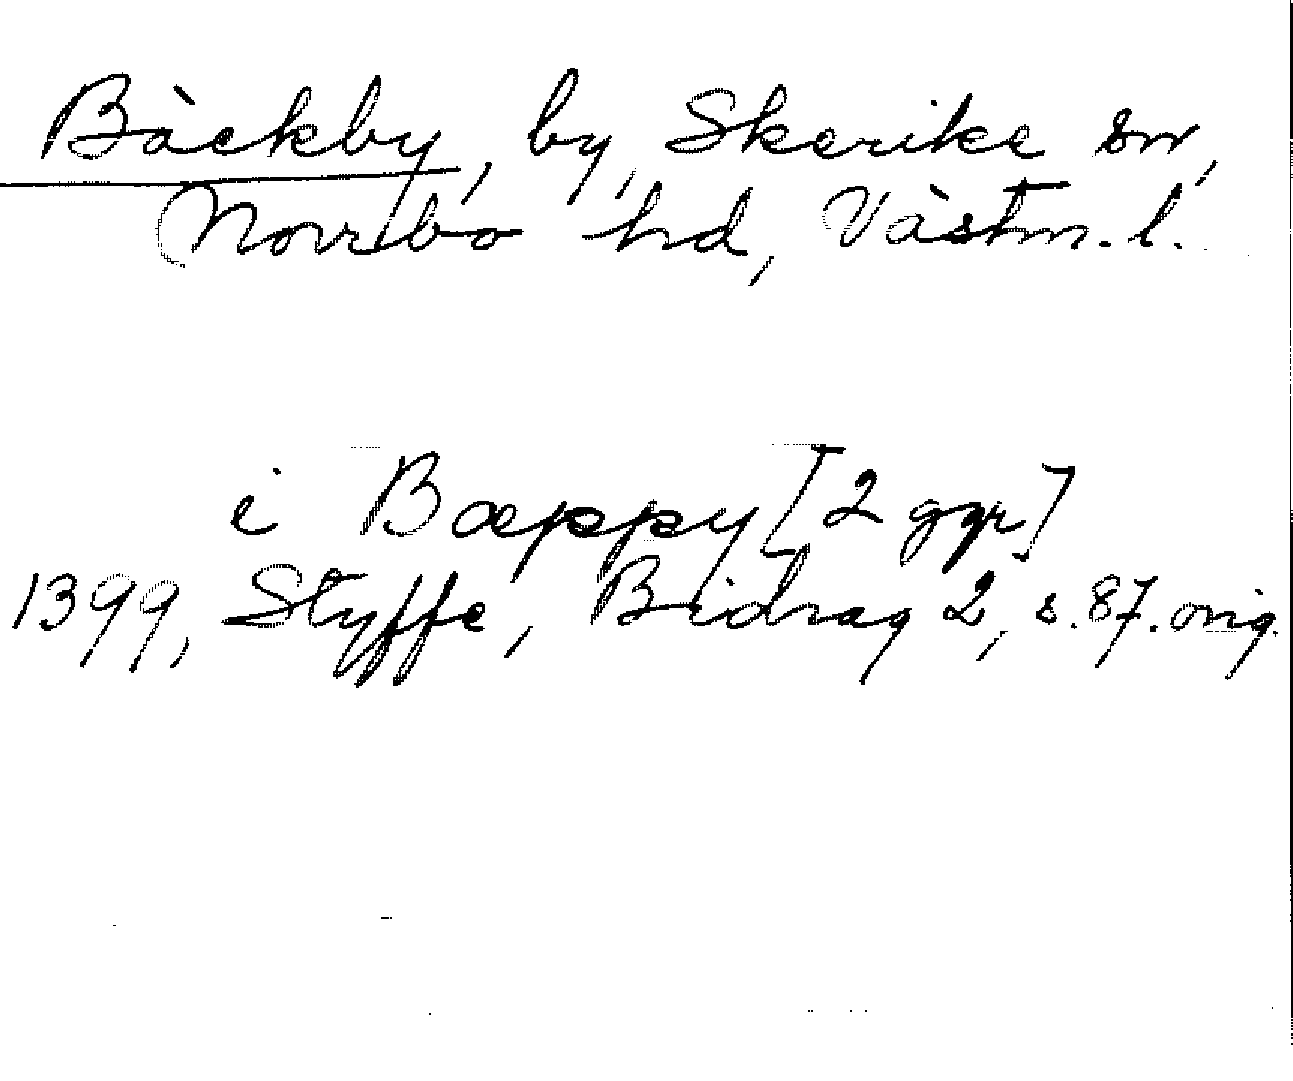 Bäckby, by, Skerike sn,
Norrbo hd, Västm. l.
i Bæppy [2 ggr]
1399, Styffe, Bidrag 2, s. 87. orig.